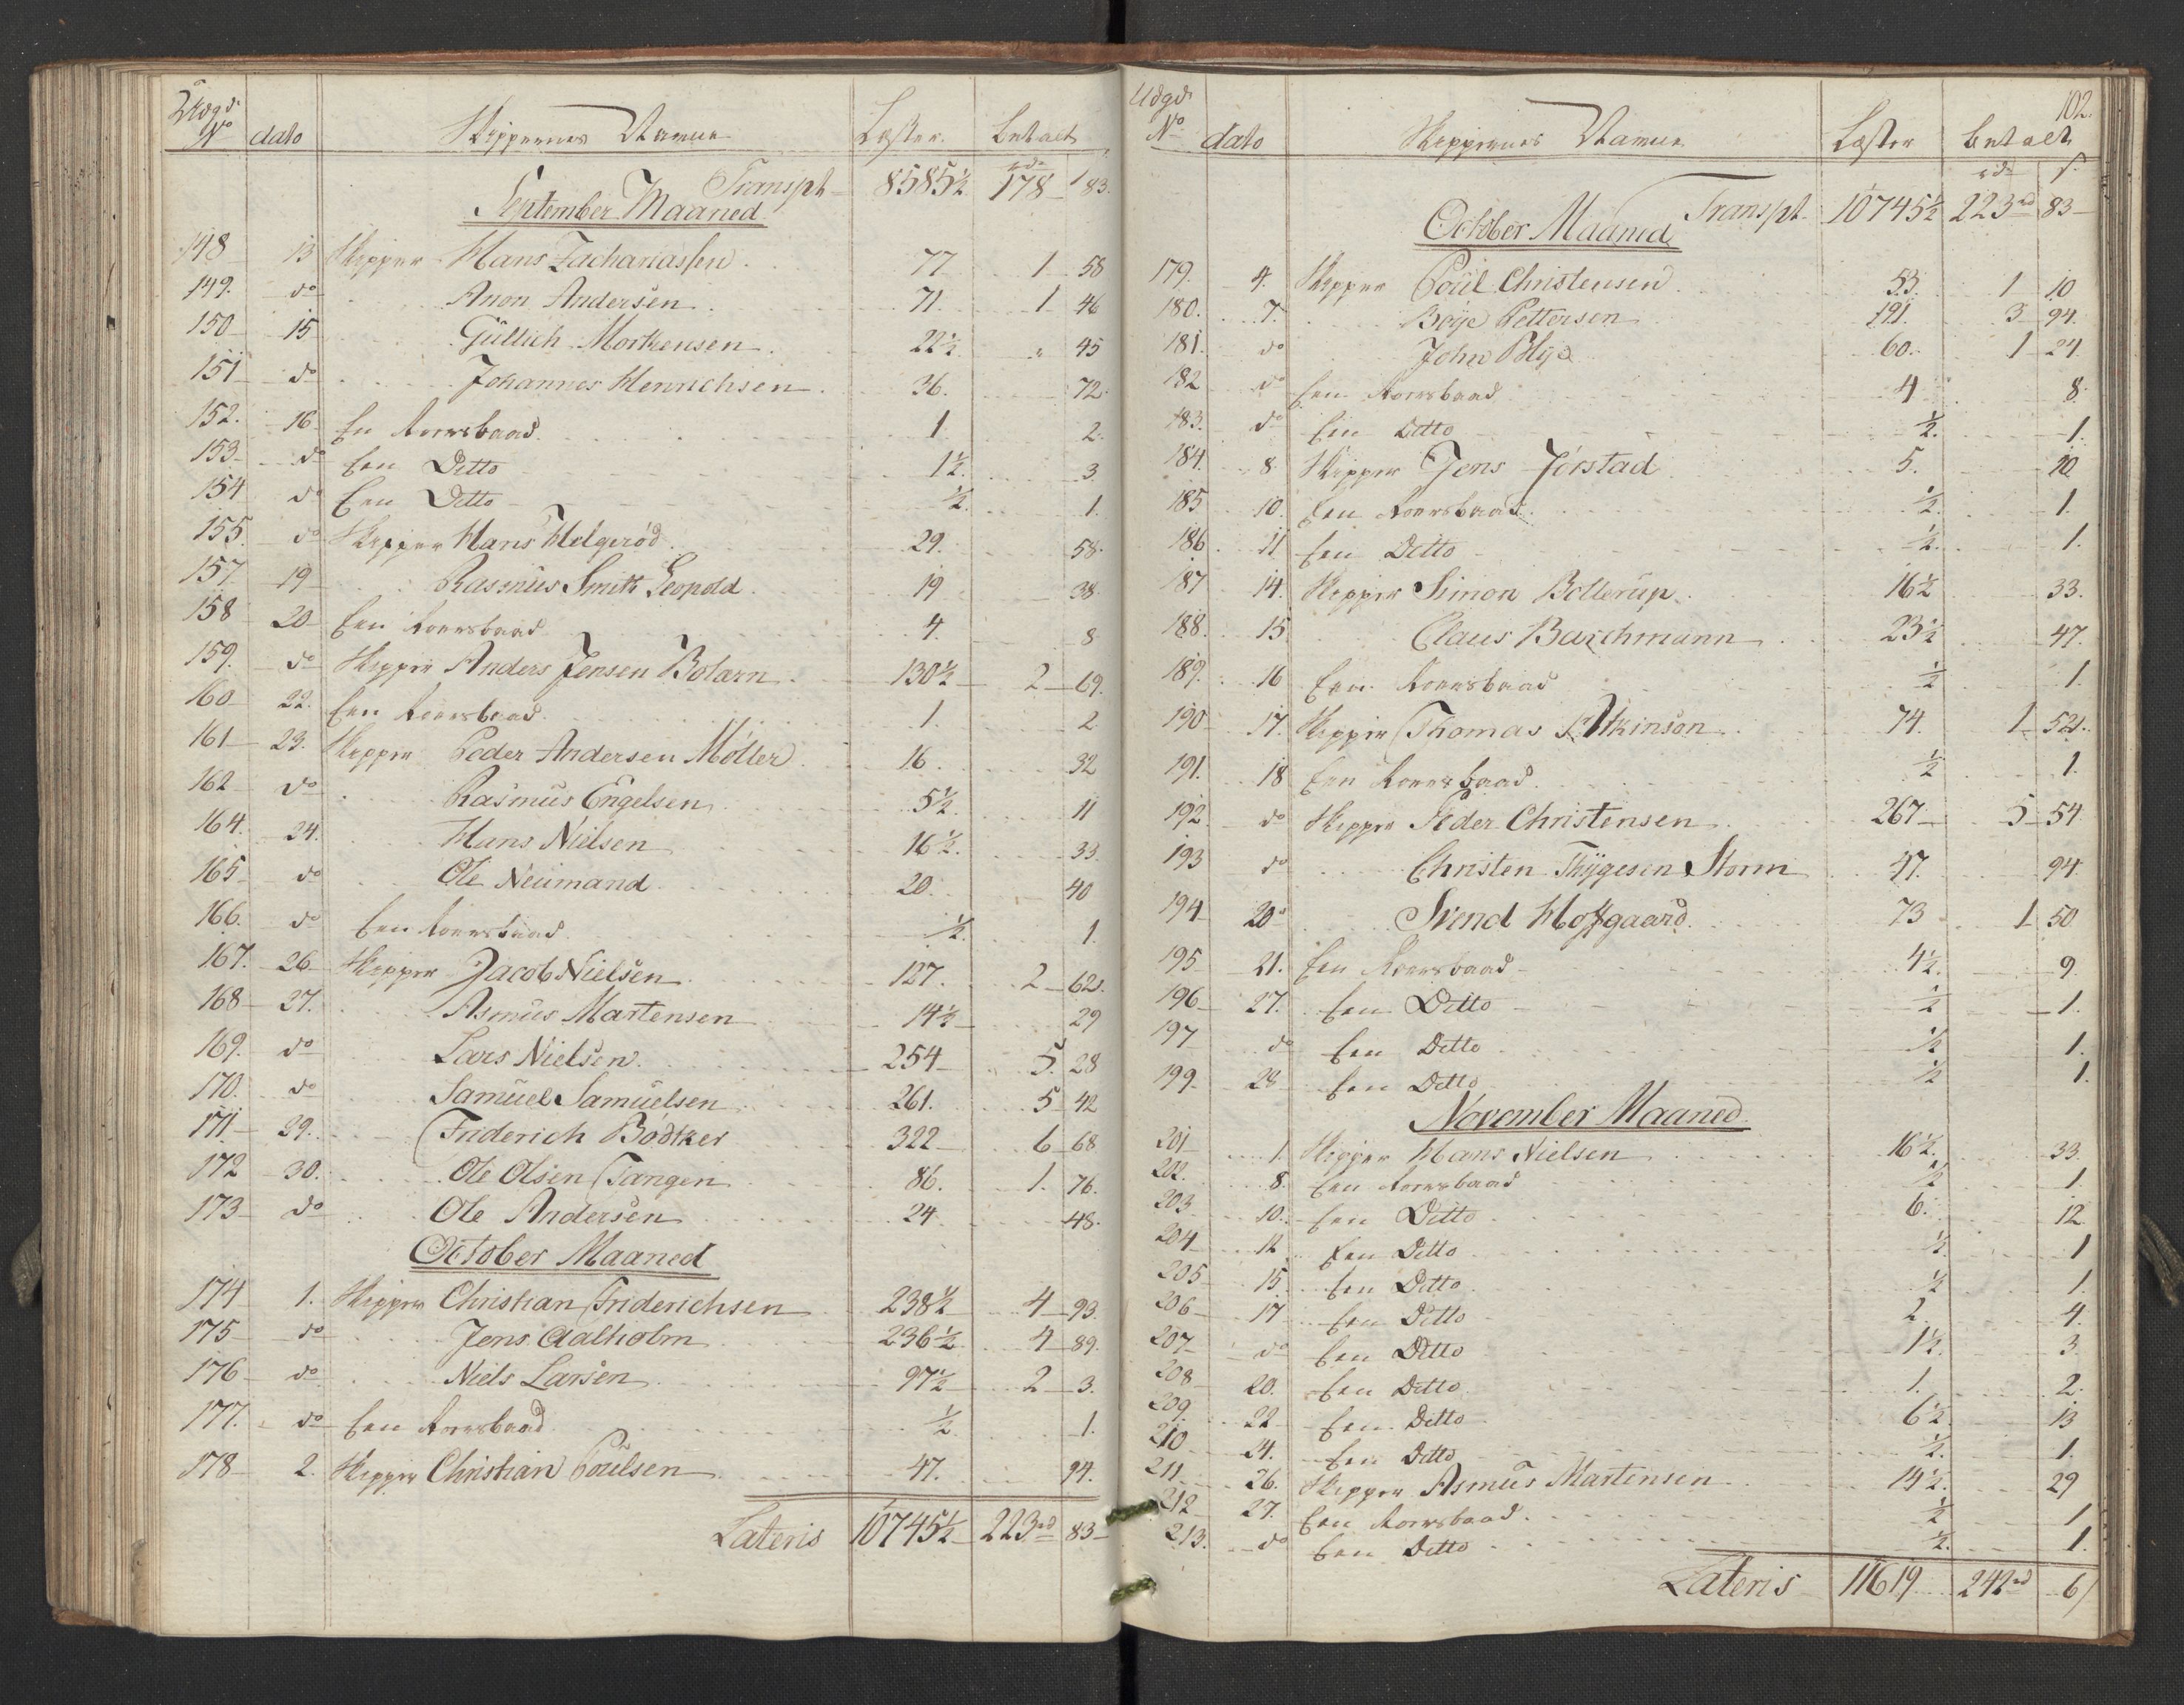 Udgds No dato Skippernes Navne Læster. betalt
Transpt 8585½ 178 rd 83.
September Maaned
148 13 Skipper Hans Zachariassen 77 1 58
149. do Anon Andersen 71. 1 46
150 15 Güllich Mortensen 22½ " 45
151 do Johannes Henrichsen 36. 72.
152. 16 En Roersbaad 1. 2.
153 do Een Ditto 1½. 3
154 do Een Ditto ½. 1.
155. do Skipper Hans Helgerød 29. 58.
157. 19 Rasmus Smith Leopold 19 38
158 20 Een Roersbaad 4. 8
159. do Skipper Anders Jensen Bolærn 130½ 2 69.
160 22. Een Roersbaad 1. 2
161 23. Skipper Peder Andersen Møller 16. 32
162 do Rasmus Engelsen 5½. 11
164. 24. Hans Nielsen 16½. 33.
165 do Ole Neumand 20. 40
166. do Een Roersbaad ½. 1.
167. 26 Skipper Jacob Nielsen 127. 2 62.
168 27. Asmus Martensen 14½ 29
169. do Lars Nielsen 254 5. 28
170. do Samuel Samuelsen 261. 5 42
171 29. Friderich Bødtker 322 6 68
172 30. Ole Olsen Tangen 86. 1. 76.
173 do Ole Andersen 24 48.
October Maaned
174 1. Skipper Christian Friderichsen 238½ 4 93.
175 do Jens Aalholm 236½ 4 89.
176 do Niels Larsen 97½ 2 3.
177. do Een Roersbaad ½. 1.
178 2. Skipper Christian Poulsen 47. 94.
Lateris 10745½ 223 rd 83
102.
Udgds No dato Skippernes Navne Læster betalt
rd s.
Transpt 10745½ 223 rd 83
October Maaned
179. 4. Skipper Poul Christensen 53. 1 10
180. 7. Boye Pettersen 191. 3 94.
181. do John Blye 60. 1 24
182 do Een Roersbaad 4 8.
183. do Een Ditto ½. 1.
184. 8 Skipper Jens Jørstad 5. 10
185 10. Een Roersbaad ½. 1.
186 11 Een Ditto ½. 1.
187 14. Skipper Simon Bollerup 16½ 33.
188. 15 Claus Barchmann 23½ 47.
189. 16 Een Roersbaad ½ 1.
190 17. Skipper Thomas Atkinson 74. 1 52.
191. 18 Een Roersbaad ½ 1.
192. do Skipper Peder Christensen 267 5 54
193 do Christen Thygesen Storm 47. 94
194 20 Svend Hofgaard 73 1 50
195 21. Een Roersbaad 4½. 9.
196 27. Een Ditto ½ 1.
197 do Een Ditto ½ 1.
199. 28 Een Ditto ½ 1.
November Maaned
201 1. Skipper Hans Nielsen 16½. 33.
202. 8. Een Roersbaad ½ 1.
203 10. Een Ditto 6. 12.
204 12 Een Ditto ½. 1
205 15. Een Ditto ½ 1.
206 17 Een Ditto 2 4.
207 do Een Ditto 1½. 3.
208 20. Een Ditto 1. 2.
209. 22 Een Ditto 6½. 13
210 24. Een Ditto ½. 1.
211 26. Skipper Asmus Martensen 14½. 29
212 27. Een Roersbaad ½ 1
213. do Een Ditto ½. 1.
Lateris 11619 242 rd 61